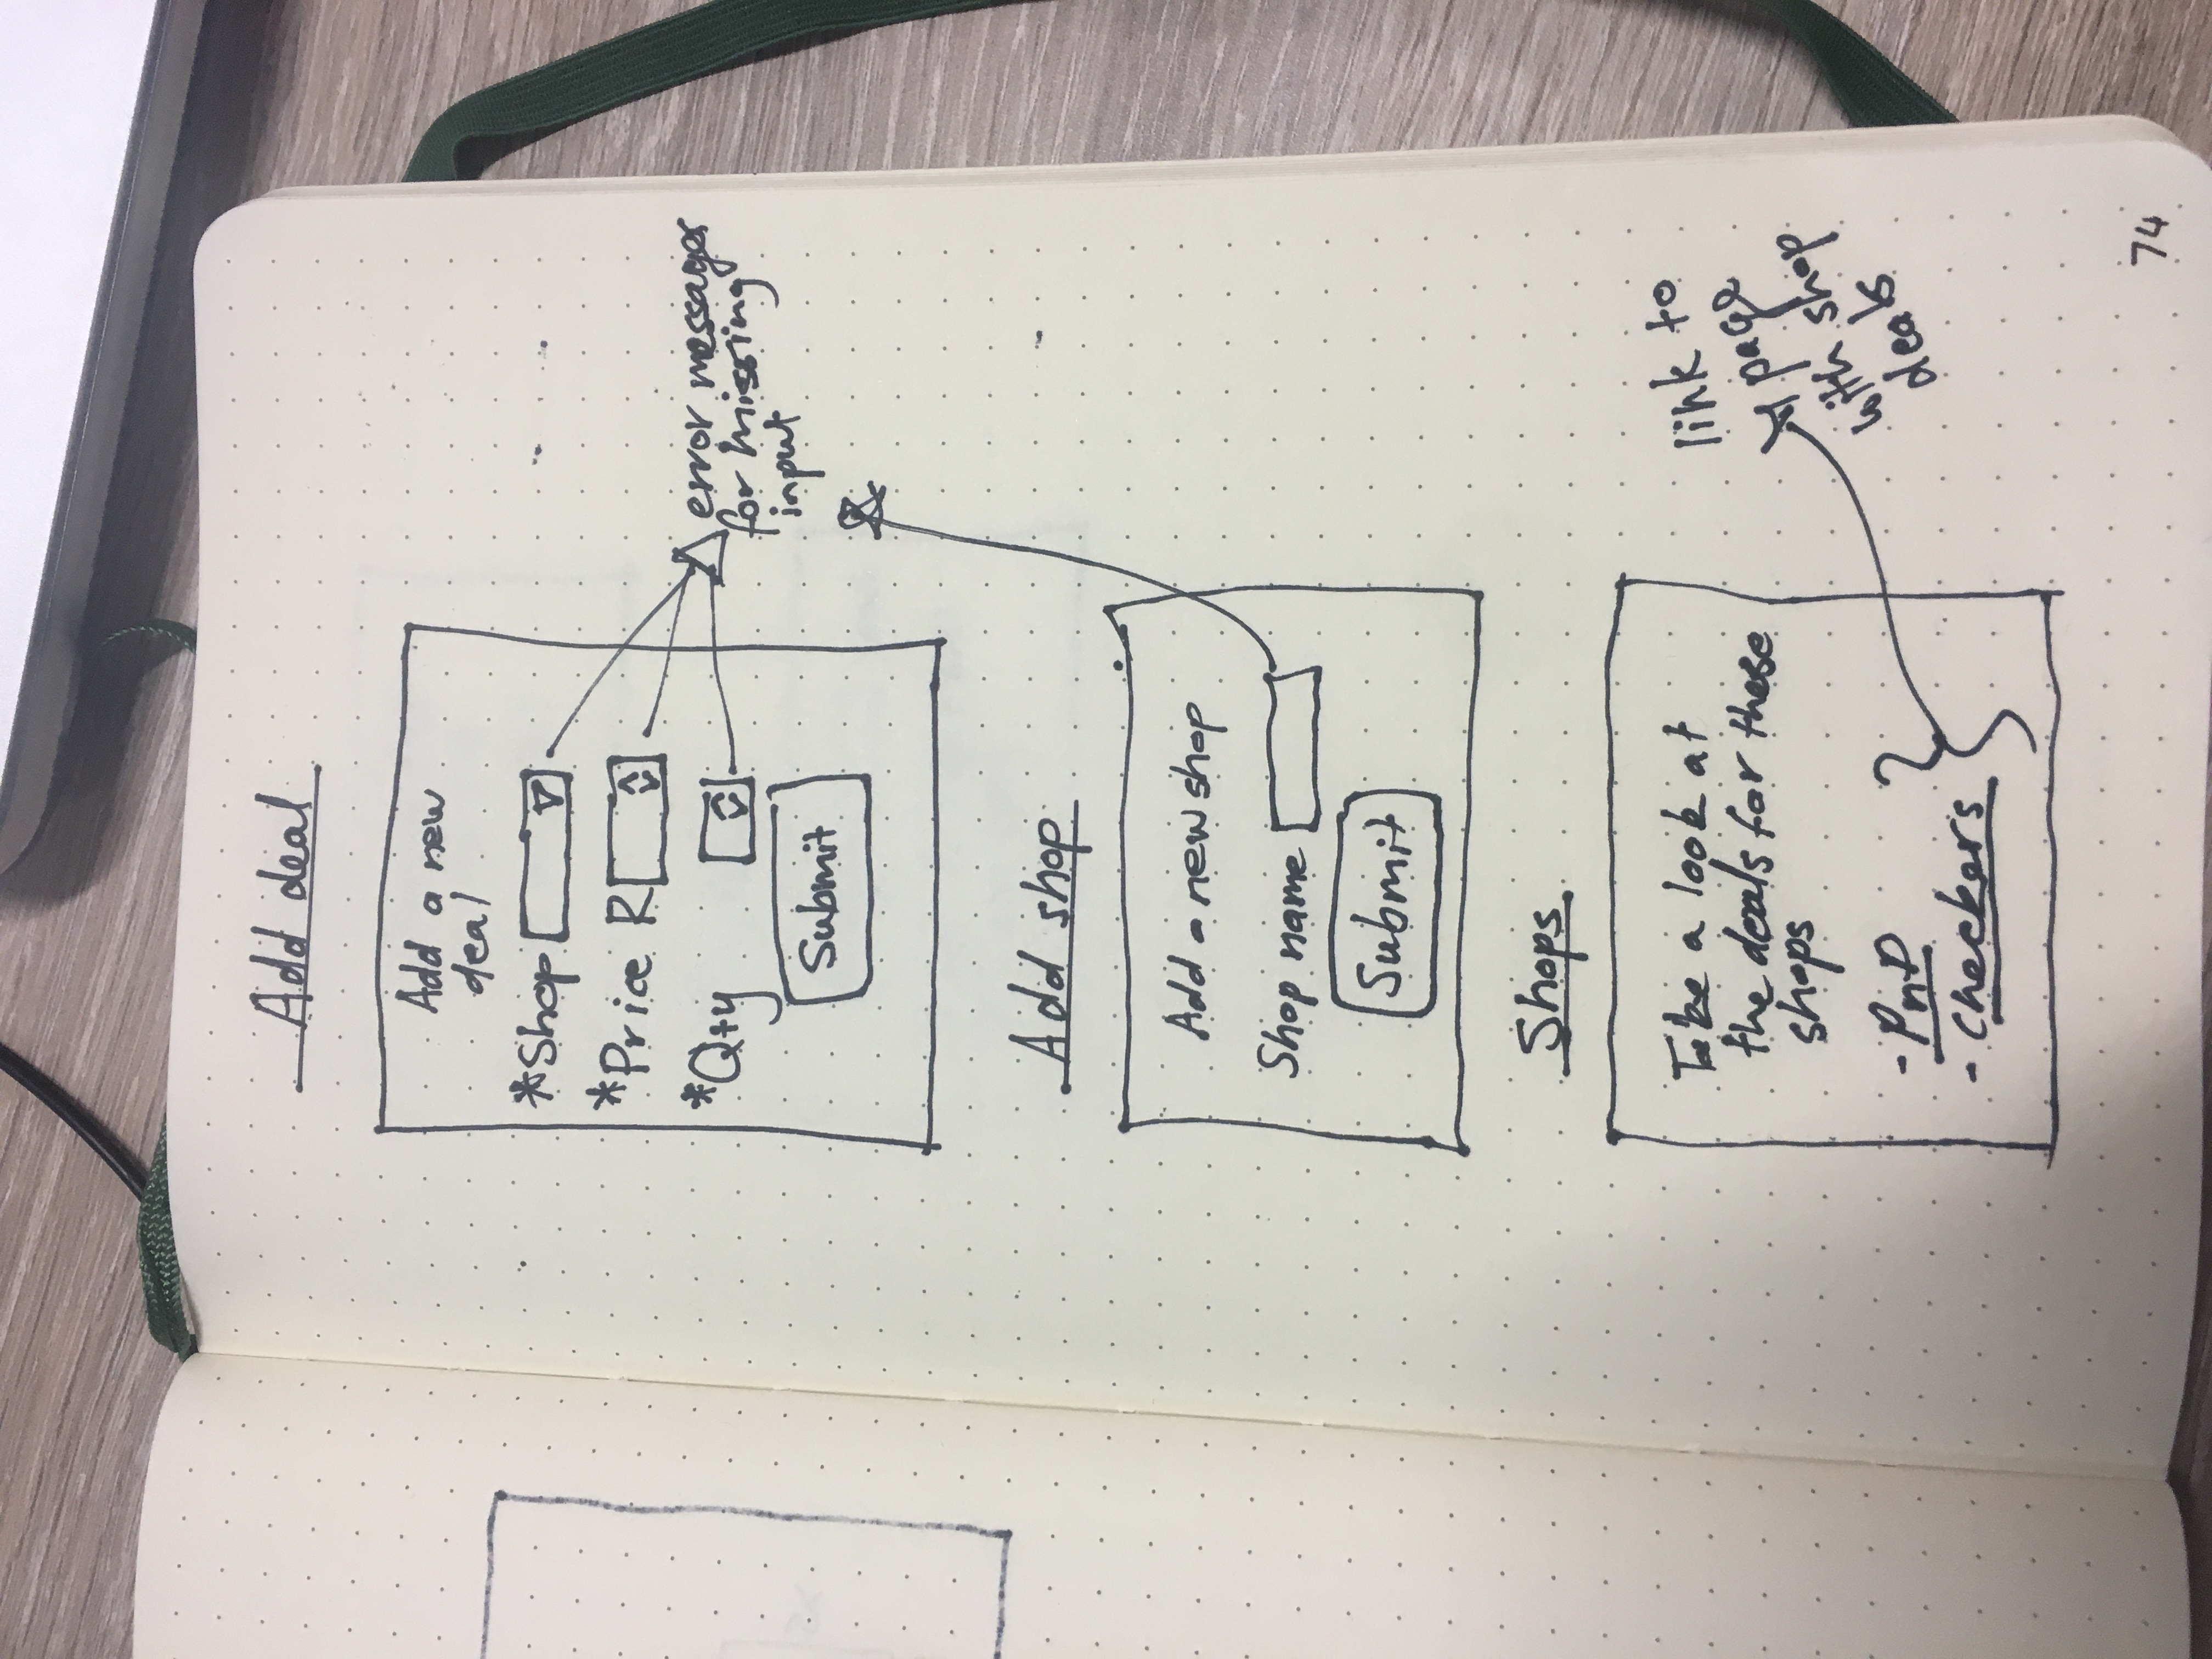 Add deal
Add a new
deal
*Shop
*Price R
*Qty
Submit
error messages
for missing
input
Add shop
Add a new shop
Shop name
Submit
Shops
Take a look at
the deals for these
shops
- PnP
- Checkers
link to
page
with shop
deals
74